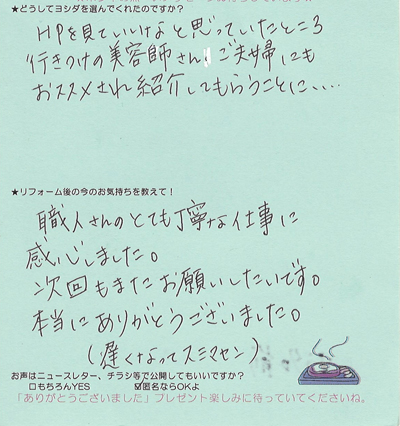 ★どうしてヨシダを選んでくれたのですか？
HPを見ていいけなと思っていたところ
行きつけの美容師さん！ご夫婦にも
おススメされ紹介してもらうことに、、、
★リフォーム後の今のお気持ちを教えて！
職人さんのとても丁寧な仕事に
感心しました。
次回もまたお願いしたいです。
本当にありがとうございました。
（遅くなってスミマセン）
お声はニュースレター、チラシ等で公開してもいいですか？
□もちろんYES ☑匿名ならOKよ
「ありがとうございました」プレゼント楽しみに待っていてくださいね。